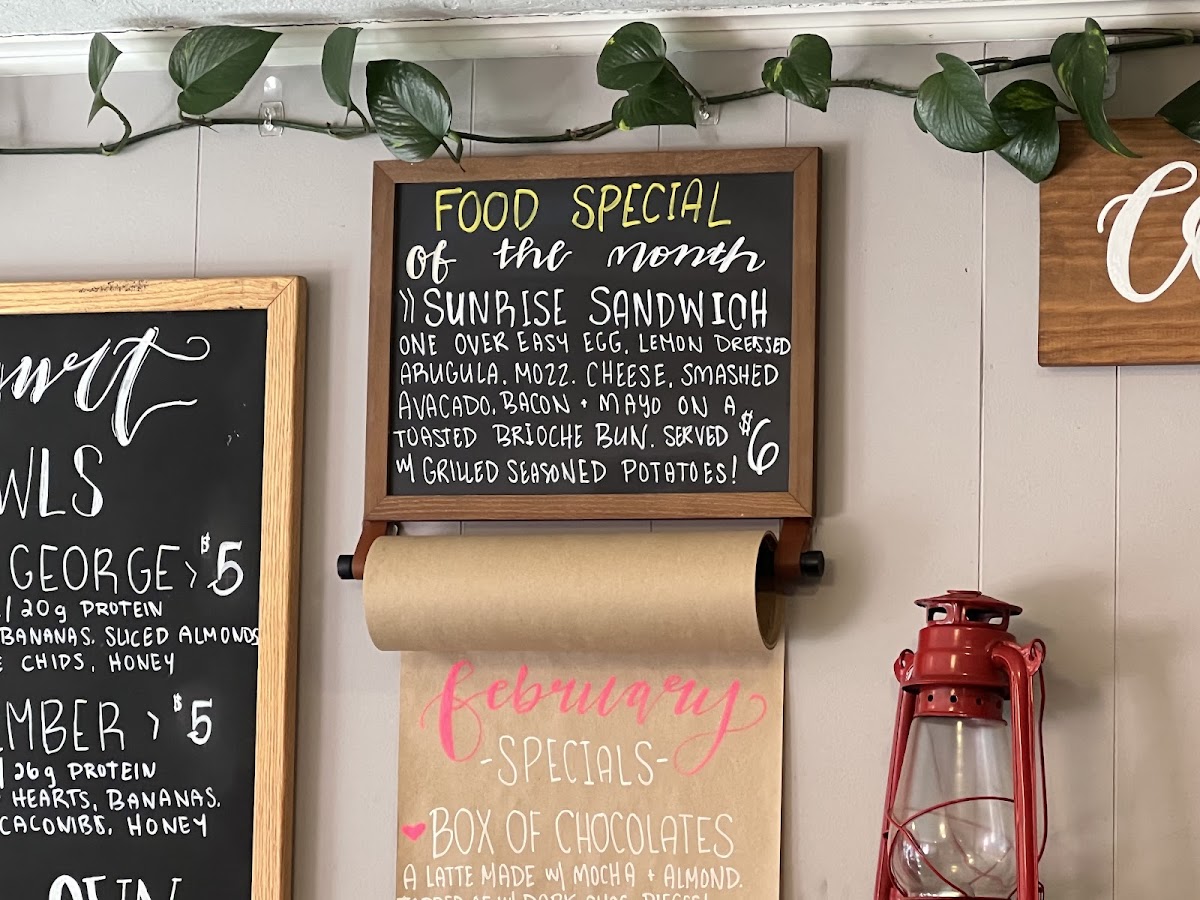 FOOD SPECIAL
of the month
» SUNRISE SANDWICH
ONE OVER EASY EGG, LEMON DRESSED
ARUGULA, MOZZ. CHEESE, SMASHED
AVACADO, BACON + MAYO ON A
TOASTED BRIOCHE BUN. SERVED
W/ GRILLED SEASONED POTATOES!
$6
WLS
GEORGE > $5
/ 20g PROTEIN
BANANAS, SLICED ALMONDS
CHIPS, HONEY
MBER > $5
/ 26g PROTEIN
HEARTS, BANANAS,
HONEY
february
-SPECIALS-
♥ BOX OF CHOCOLATES
A LATTE MADE W/ MOCHA + ALMOND.